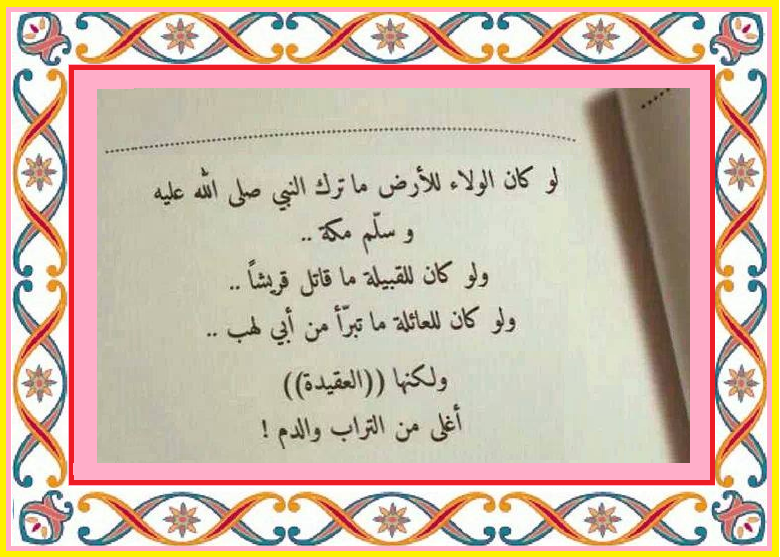 لو كان الولاء للأرض ما ترك النبي صلى الله عليه
و سلّم مكة ..
ولو كان للقبيلة ما قاتل قريشاً ..
ولو كان للعائلة ما تبرّأ من أبي لهب ..
ولكنها ((العقيدة))
أغلى من التراب والدم !